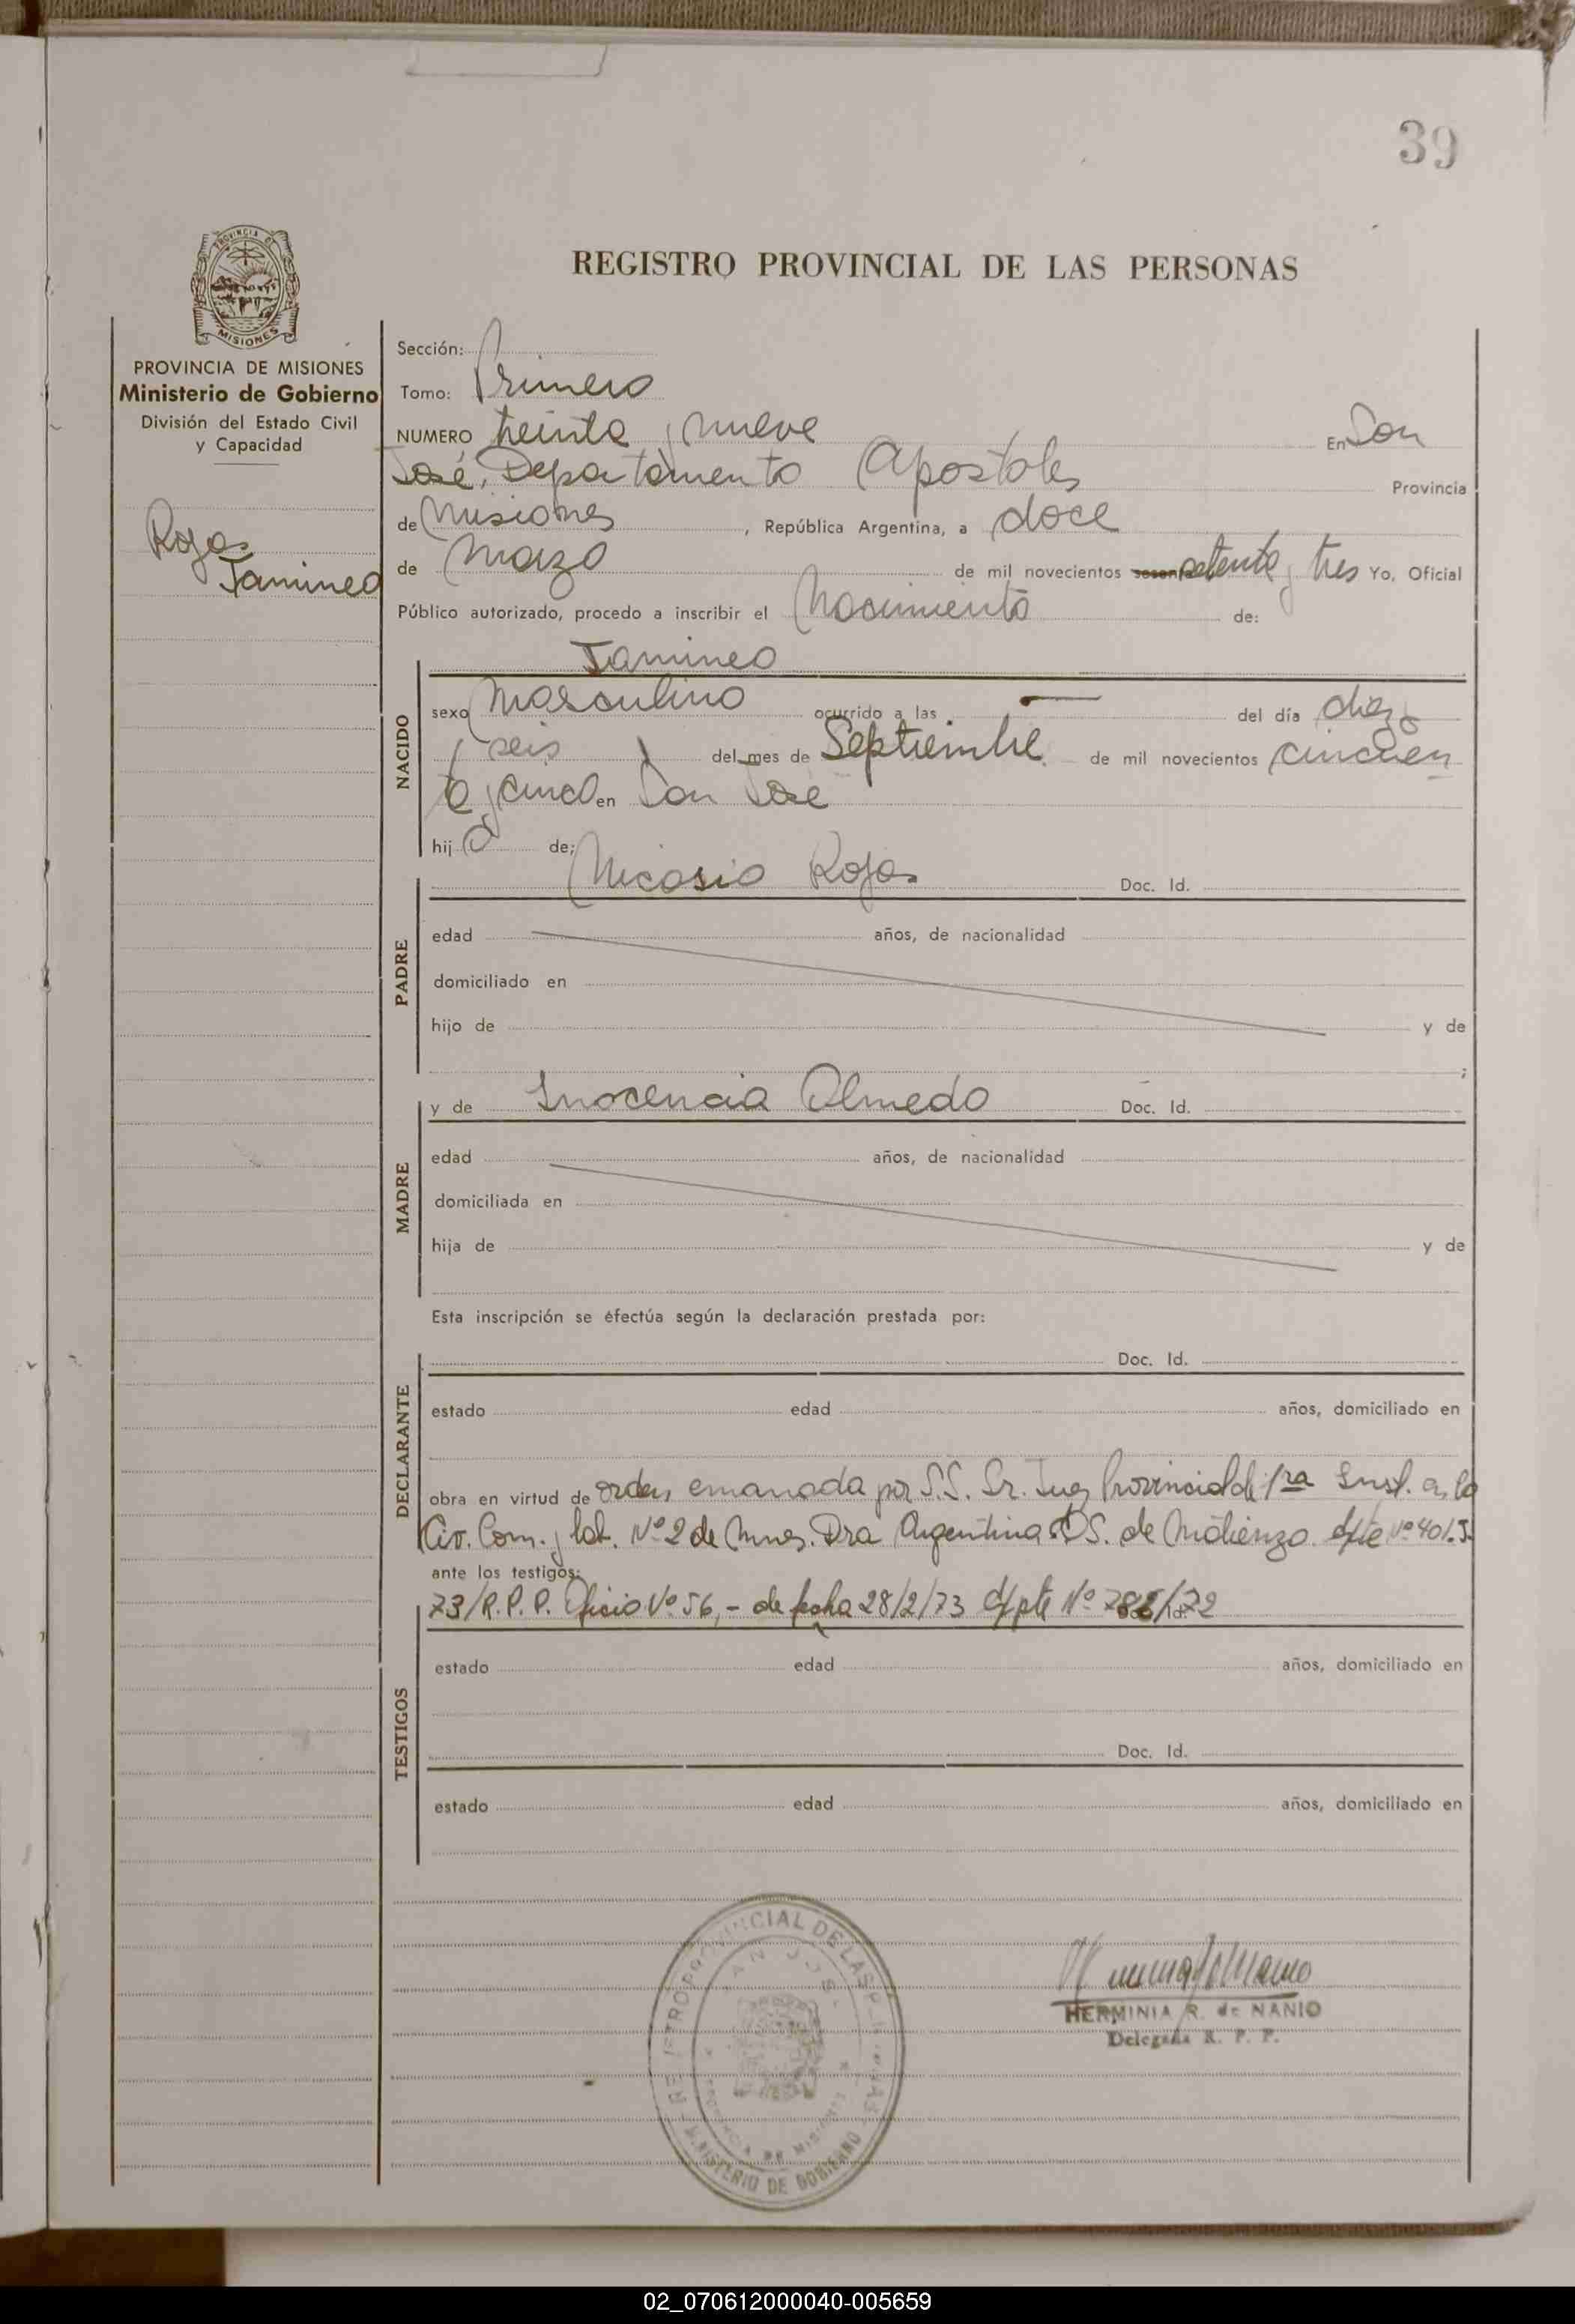 39
PROVINCIA DE MISIONES
REGISTRO PROVINCIAL DE LAS PERSONAS
PROVINCIA DE MISIONES
Ministerio de Gobierno
División del Estado Civil
y Capacidad
Rojas
Jamineo
Sección:
Tomo: Primero
NUMERO treinta y nueve En San
José, Departamento Apostoles Provincia
de Misiones, República Argentina, a doce
de Marzo de mil novecientos sesenta setenta y tres Yo, Oficial
Público autorizado, procedo a inscribir el Nacimiento de:
Jamineo
NACIDO
sexo Masculino ocurrido a las — del día diez
y seis del mes de Septiembre de mil novecientos cincuen
ta y cinco en San José
hijo de:
Nicasio Rojas Doc. Id.
PADRE
edad años, de nacionalidad
domiciliado en
hijo de y de
;
MADRE
y de Inocencia Olmedo Doc. Id.
edad años, de nacionalidad
domiciliada en
hija de y de
Esta inscripción se éfectúa según la declaración prestada por:
DECLARANTE
Doc. Id.
estado edad años, domiciliado en
obra en virtud de orden emanada por S.S. Sr. Juez Provincial de 1ra Inst. en lo
Civ. Com. y lab. Nº 2 de Mnes. Dra Argentina S. de Matienzo. Expte Nº 401.J.
ante los testigos:
73/R.P.P. Oficio Nº 56,- de fecha 28/2/73 Expte Nº /72
TESTIGOS
estado edad años, domiciliado en
Doc. Id.
estado edad años, domiciliado en
REGISTRO PROVINCIAL DE LAS PERSONAS
SAN JOSE
PROVINCIA DE MISIONES
MINISTERIO DE GOBIERNO
HERMINIA R. de NANIO
Delegada R. P. P.
02_070612000040-005659